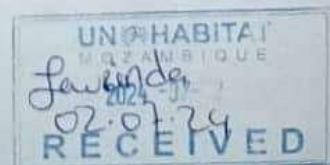 UN HABITAT
MOZAMBIQUE
02.07.24
RECEIVED